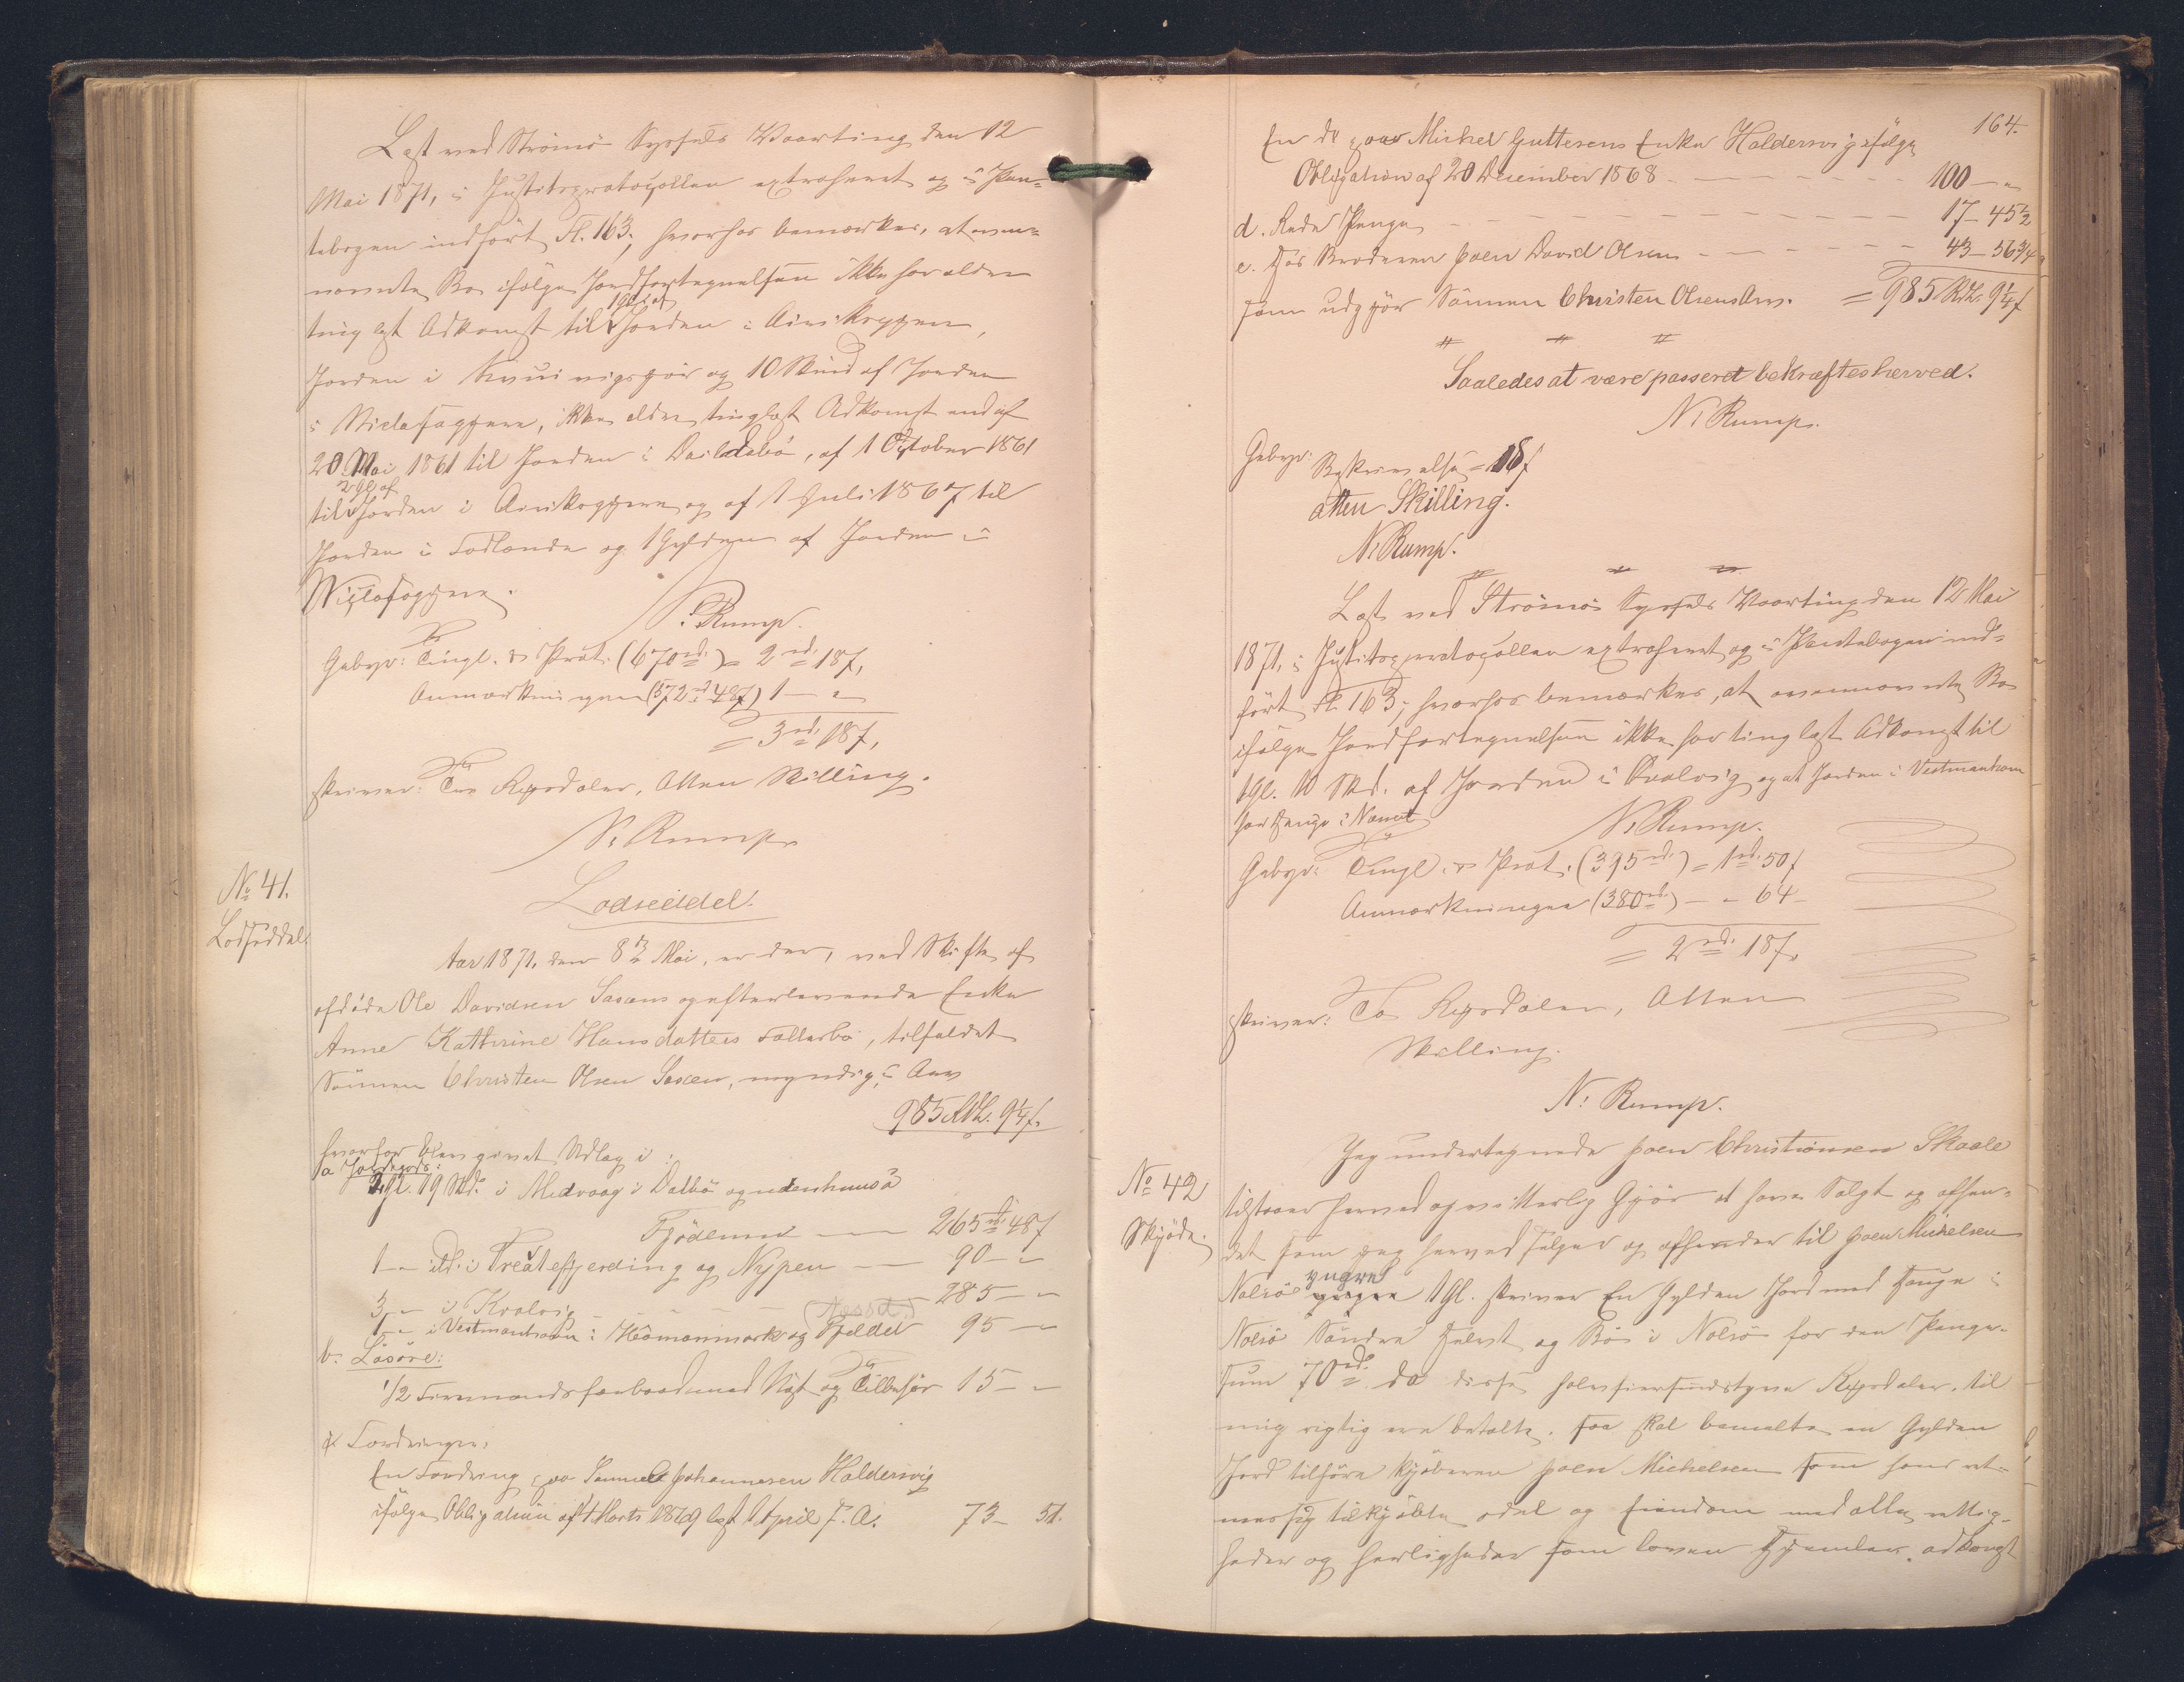 Læst ved Strömö Syssels Vaarting den 12
Mai 1871, i Justitsprotocollen extraheret og i Pan-
tebogen indført Fl. 163, hvorhos bemærkes, at oven-
nævnte Bo ifølge Jordfortegnelsen ikke har ældre
1 Gl. af
tinglyst Adkomst til Jorden i
Jorden i og 10 Skind af Jorden
i , ikke ældre tinglæst Adkomst end af
20 Mai 1861 til Jorden i , af 1 October 1861
2 Gl. af
til Jorden i og af 1 Juli 1867 til
Jorden i og 1 Gylden af Jorden i
N: Rump.
Gebyr: Tingl. & Prot. (670 rd.) = 2 rd. 18 ß,
Anmærkningen (572 rd. 48 ß) 1 - "
= 3 rd. 18 ß,
skriver: Tre Rigsdaler, Atten Skilling.
N: Rump
No 41.
Lodseddel.
Lodseddel.
Aar 1871, den 8de Mai, er der, ved Skifte af
afdöde Ole Davidsen Saxens og efterlevende Enke
Anne Kathrine Hansdatters , tilfaldet
Sönnen Christen Olsen Saxen, myndig, i Arv
985 Rdl. 9¼ ß.
hvorfor blev givet Udlæg i:
a Jordegods:
2 Gl. 19 Skd. i Medvaag i Dalbö og
265 rd. 48 ß
1 - " itd. i og Nypen — 90 - "
3 - " i Kvalvig 285 - "
1 - " i Vestmanhavn i 95 - "
b. Lösöre:
1/2 med og Tilbehör 15 - "
c. Fordringer:
En Fordring paa Samuel Johannesen Haldersvig
ifølge Obligation af 4 Marts 1869 læst 1 April s. A. 73 - 51.
164.
En do paa Michel Guttesens Enke Haldersvig ifølge
Obligation af 20 December 1868 100 - "
d. Rede Penge 17 - 45½
e. hos Broderen Joen David Olsen 43 - 56¾
som udgjör Sönnen Christen Olsens Arv. = 985 Rdl. 9¼ ß
Saaledes at være passeret bekræftes herved.
N: Rump.
Gebyr: Beskrivelse = 18 ß
atten Skilling.
N: Rump.
Læst ved Strömö Syssels Vaarting den 12 Mai
1871, i Justitsprotocollen extraheret og i Pantebogen ind-
ført Fl. 163; hvorhos bemærkes, at ovennævnte Bo
ifølge Jordfortegnelsen ikke har tinglæst Adkomst til
1 Gl. 10 Skd. af Jorden i Kvalvig og at Jorden i Vestmanhavn
N: Rump.
Gebyr: Tingl. & Prot. (395 rd.) = 1 rd. 50 ß
Anmærkningen (380 rd.) - " 64 -
= 2 rd. 18 ß,
skriver: To Rigsdaler, Atten
Skilling.
N: Rump.
No 42
Skjöde.
Jeg undertegnede Joen Christiansen Skaale
tilstaaer herved og vitterlig Gjör at have Solgt og afhæn-
det som jeg herved sælger og afhænder til Joen Michelsen
yngre
Nolsö 1 Gl. skriver En Gylden Jord med Hauge i
Nolsö Söndre og Böi i Nolsö for den Penge-
sum 70 rd. da disse halvfierssindstyve Rigsdaler, til
mig rigtig ere betalte, saa skal bemelte en Gylden
Jord tilhöre Kjöberen Joen Michelsen som hans ret-
mæssig tilkjöbte odel og Eiendom med alle rettig-
heder og herligheder som loven hjemler. adkomst